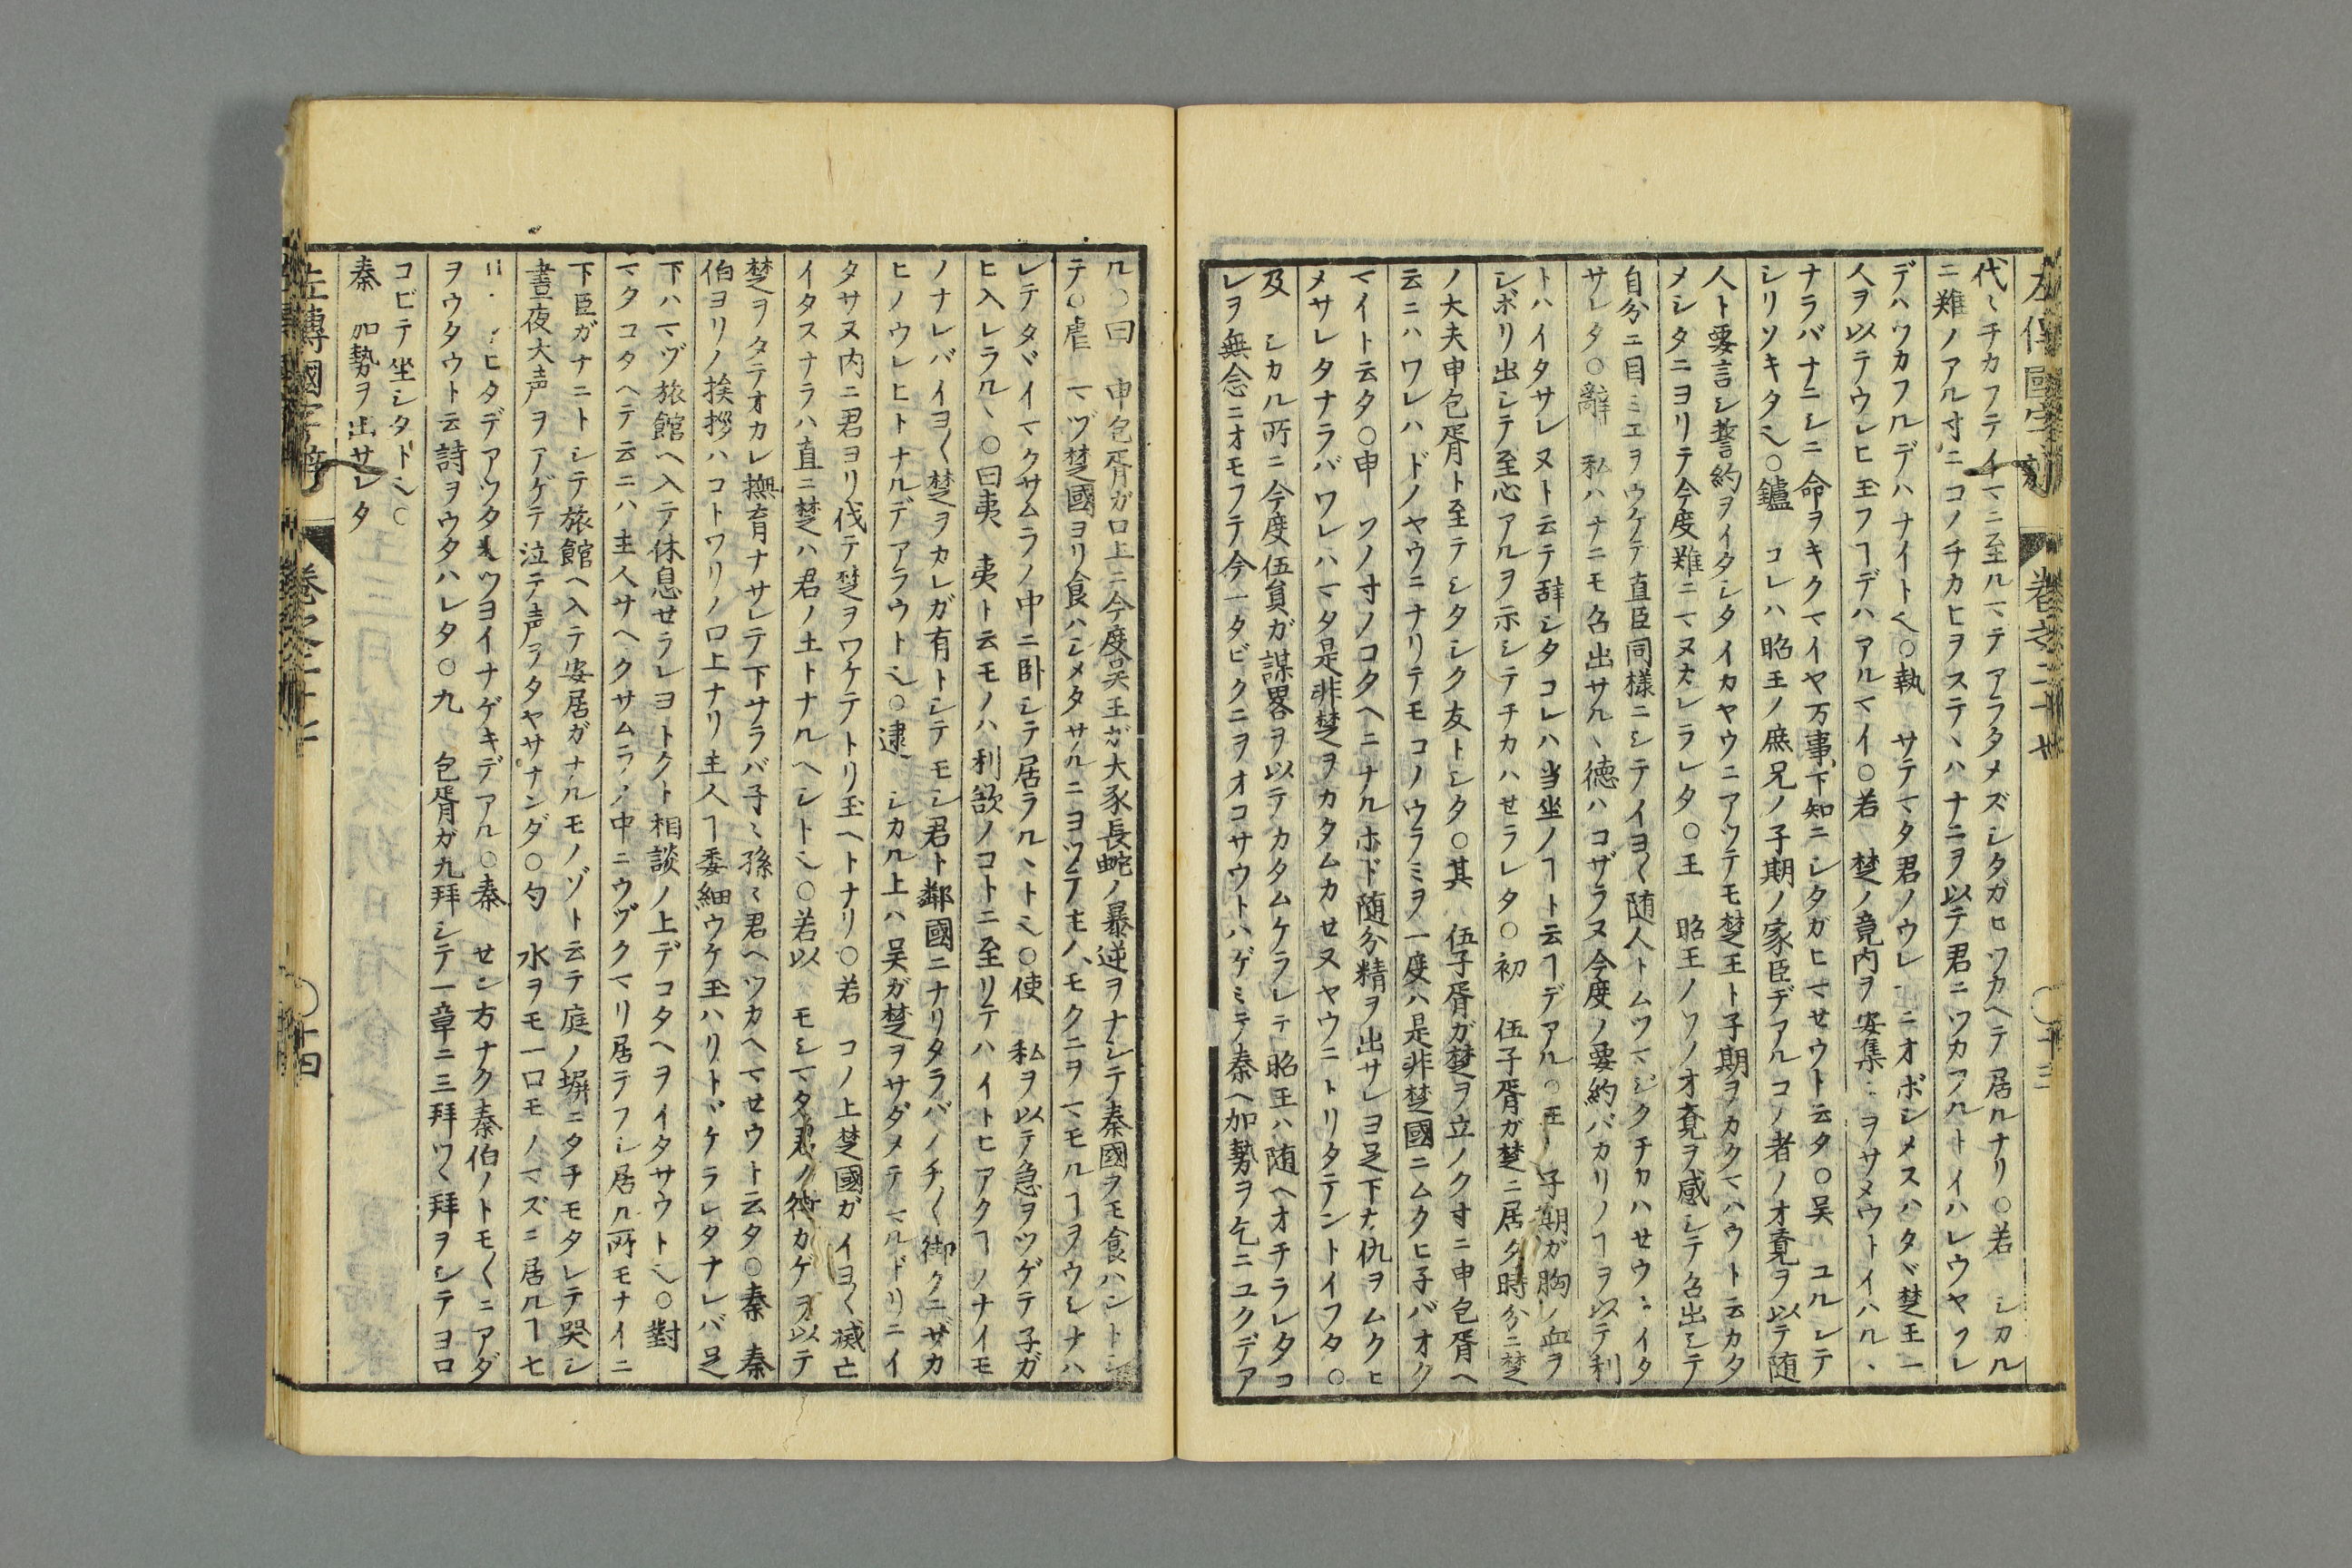 左傳國字辯 卷之二十七 ○十三
代〻チカフテイマニ至ルマテアラタメズシタガヒツカヘテ居ルナリ○若 シカル
ニ難ノアル寸ニコノチカヒヲステヽハナニヲ以テ君ニツカフルトイハレウヤソレ
デハツカフルデハナイト也○執 サテマタ君ノウレニオボシメスハタヾ楚王一
人ヲ以テウレヒ玉フヿデハアルマイ○若 楚ノ竟内ヲ安集ヲサメウトイハルヽ
ナラバナニシニ命ヲキクマイヤ万事下知ニシタガヒマセウト云タ○吴 ユルシテ
シリソキタ也○鑪 コレハ昭王ノ庶兄ノ子期ノ家臣デアルコノ者ノオ竟ヲ以テ随
人ト要言シ誓約ヲイタシタイカヤウニアツテモ楚王ト子期ヲカクマハウト云カタ
メシタニヨリテ今度難ニマヌカレラレタ○王 昭王ノソノオ竟ヲ感シテ召出シテ
自分ニ目ミエヲウケテ直臣同様ニシテイヨ〱随人トムツマジクチカハセウヽイタ
サレタ○辭 私ハナニモ召出サルヽ德ハコザラヌ今度ノ要約バカリノヿヲ以テ利
トハイタサレヌト云テ辞シタコレハ当坐ノヿト云ヿデアル○王 子期ガ胸ノ血ヲ
シボリ出シテ至心アルヲ示シテチカハせラレタ○初 伍子胥ガ楚ニ居タ時分ニ楚
ノ大夫申包胥ト至テシタシク友トシタ○其 伍子胥ガ楚ヲ立ノク寸ニ申包胥ヘ
云ニハワレハドノヤウニナリテモコノウラミヲ一度ハ是非楚國ニムクヒ子バオク
マイト云タ○申 ソノ寸ノコタヘニナルホド随分精ヲ出サレヨ足下ナ仇ヲムクヒ
メサレタナラバワレハマタ是非楚ヲカタムカせヌヤウニトリタテントイフタ○
及 シカル所ニ今度伍員ガ謀畧ヲ以テカタムケラレテ昭王ハ随ヘオチラレタコ
レヲ無念ニオモフテ今一タビクニヲオコサウトハゲミテ秦ヘ加勢ヲ乞ニユクデア
ル○曰 申包胥ガ口上ニ今度吴王ガ大豕長蛇ノ暴逆ヲナシテ秦國ヲモ食ハントシ
テ○虐 マヅ楚國ヨリ食ハシメタサルニヨツテモノヽモクニヲマモルヿヲウシナハ
レテタヾイマクサムラノ中ニ卧シテ居ラルヽト也○使 私ヲ以テ急ヲツゲテ子ガ
ヒ入レラルヽ○曰夷 夷ト云モノハ利欲ノコトニ至リテハイトヒアクヿノナイモ
ノナレバイヨ〱楚ヲカレガ有トシテモシ君ト鄰國ニナリタラバノチ〱御クニザカ
ヒノウレヒトナルデアラウト也○逮 シカル上ハ吴ガ楚ヲサダメテマルドリニイ
タサヌ内ニ君ヨリ伐テ楚ヲワケテトリ玉ヘトナリ○若 コノ上楚國ガイヨ〱滅亡
イタスナラハ直ニ楚ハ君ノ土トナルヘシト也○若以 モシマタ君ノ御カゲヲ以テ
楚ヲタテオカレ撫育ナサレテ下サラバ子〻孫〻君ヘツカヘマせウト云タ○秦 秦
伯ヨリノ挨拶ハコトワリノ口上ナリ主人ヿ委細ウケ玉ハリトヾケラレタナレバ足
下ハマヅ旅館ヘ入テ休息せラレヨトクト相談ノ上デコタヘヲイタサウト也○對
マタコタヘテ云ニハ主人サヘクサムラノ中ニウヅクマリ居テフシ居ル所モナイニ
下臣ガナニトシテ旅館ヘ入テ安居ガナルモノゾト云テ庭ノ塀ニタチモタレテ哭シ
晝夜大声ヲアゲテ泣テ声ヲタヤサナンダ○勺 水ヲモ一口モノマズニ居ルヿ七
ヒタデアツタ ツヨイナゲキデアル○秦 せン方ナク秦伯ノトモ〱ニアダ
ヲウタウト云詩ヲウタハレタ○九 包胥ガ九拜シテ一章ニ三拜ツヽ拜ヲシテヨロ
コビテ坐シタト也○
秦 加勢ヲ出サレタ
左傳國字辯 卷之二十七 ○十四